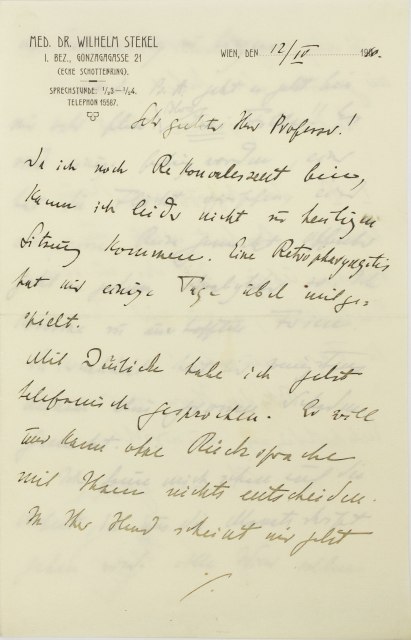 MED. DR. WILHELM STEKEL
I. BEZ., GONZAGAGASSE 21
(ECKE SCHOTTENRING.)
SPRECHSTUNDE: ½3—½4.
TELEPHON 15587.
WIEN, DEN 12/IV 1910.
Sehr geehrter Herr Professor!
Da ich noch Rekonvaleszent bin,
kann ich leider nicht zur heutigen
Sitzung kommen. Eine Retropharyngitis
hat mir einige Tage übel mitge-
spielt.
Mit Deuticke habe ich jetzt
telefonisch gesprochen. Er will
und kann ohne Rücksprache
mit Ihnen nichts entscheiden.
In Ihrer Hand scheint mir jetzt
./.